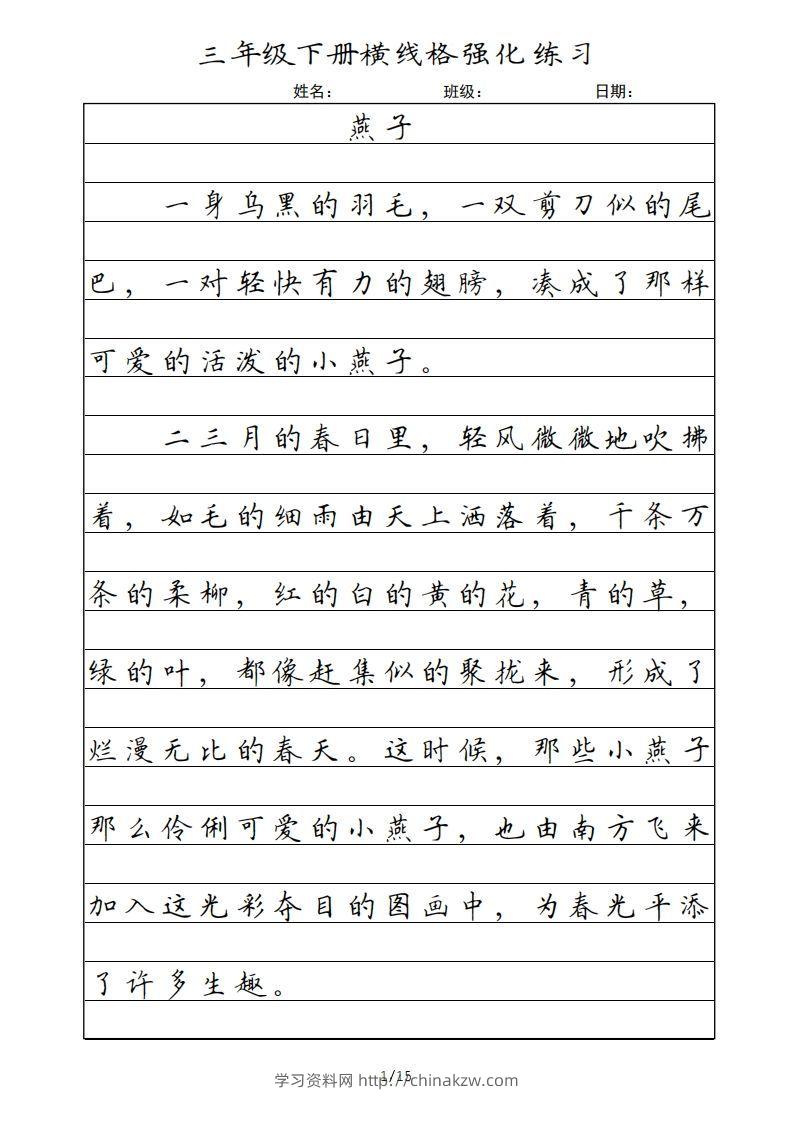 三年级下册横线格强化练习
姓名： 班级： 日期：
燕子
一身乌黑的羽毛，一双剪刀似的尾
巴，一对轻快有力的翅膀，凑成了那样
可爱的活泼的小燕子。
二三月的春日里，轻风微微地吹拂
着，如毛的细雨由天上洒落着，千条万
条的柔柳，红的白的黄的花，青的草，
绿的叶，都像赶集似的聚拢来，形成了
烂漫无比的春天。这时候，那些小燕子
那么伶俐可爱的小燕子，也由南方飞来
加入这光彩夺目的图画中，为春光平添
了许多生趣。
1/15
学习资料网 http://chinakzw.com